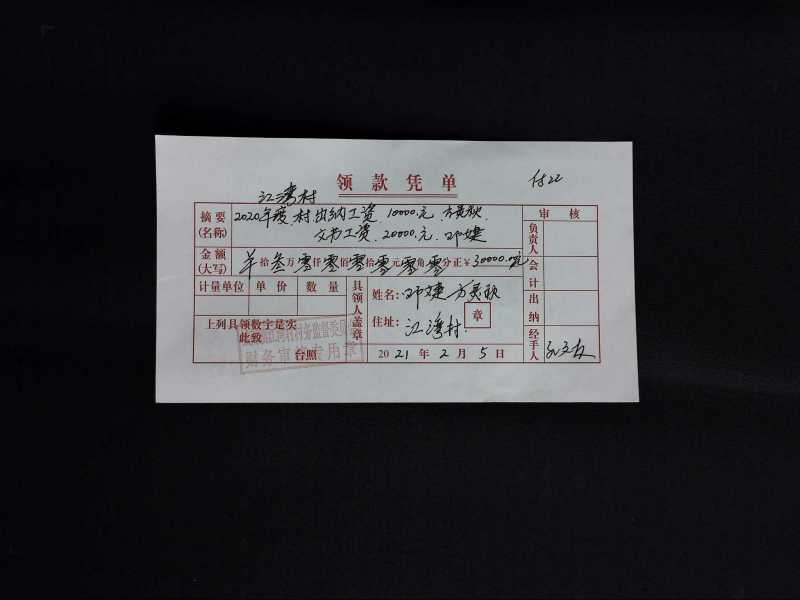 领款凭单
付22
江湾村
摘要(名称) 2020年度、村出纳工资、10000.元
文书工资、20000.元、邓婕
审核
负责人
会计
出纳
经手人
金额(大写) 羊拾叁万零仟零佰零拾零元零角零分正¥30000.00元
计量单位 单价 数量
具领人盖章
姓名:邓婕
住址:江湾村.
章
上列具领数字是实
此致
台照
村务监督委员
财务审核专用章
2021年2月5日